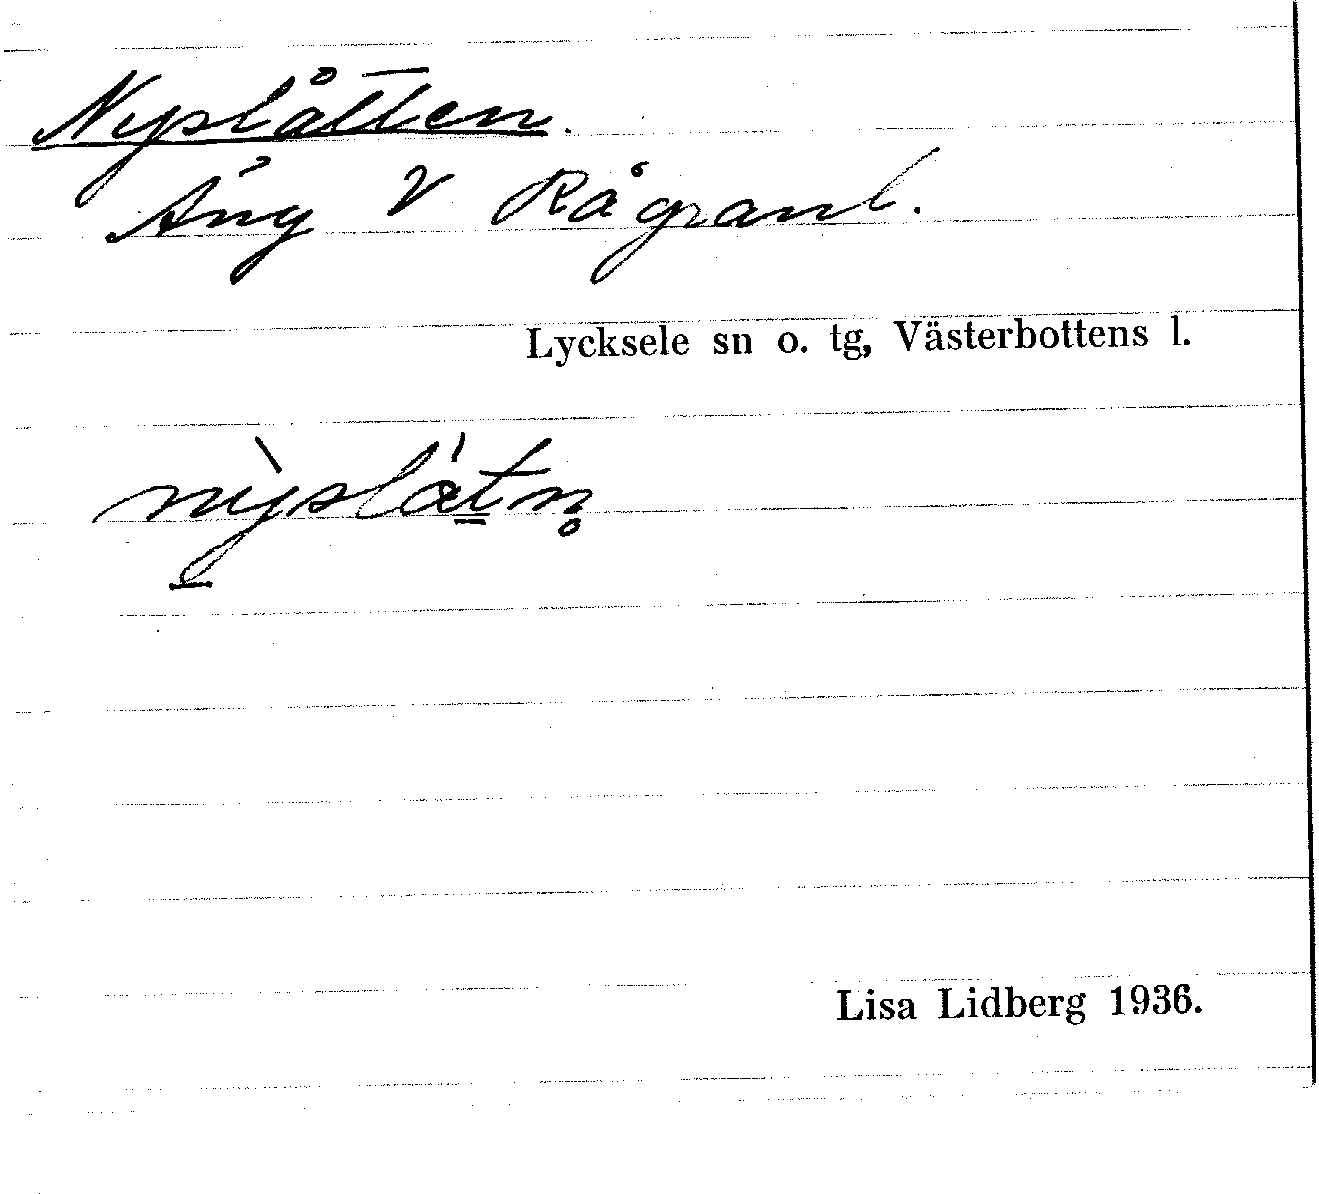 Nyslåtten.
Äng V Rågranl.
Lycksele sn o. tg, Västerbottens l.
Lisa Lidberg 1936.